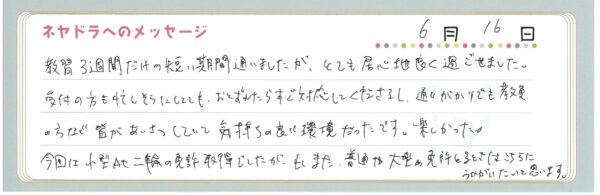 ネヤドラへのメッセージ
6月16日
教習3週間だけの短い期間通いましたが、とても居心地良く過ごせました。
受付の方も忙しそうにしてても、おとずれたらすぐ対応してくださるし、通りがかりでも教員
の方など皆があいさつしていて気持ちの良い環境だったです。楽しかった。
今回は小型AT二輪の免許取得でしたが、もしまた、普通や大型の免許とるときはこちらに
うかがいたいと思います。